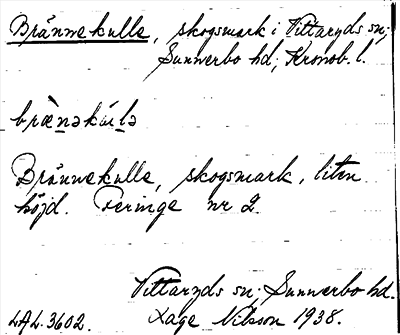 Brännekulle, skogsmark i Vittaryds sn;
Sunnerbo hd; Kronob. l.
bræ̀nəkúlə
Brännekulle, skogsmark, liten
höjd. Feringe nr 2.
Vittaryds sn; Sunnerbo hd.
LAL. 3602. Tage Nilsson 1938.